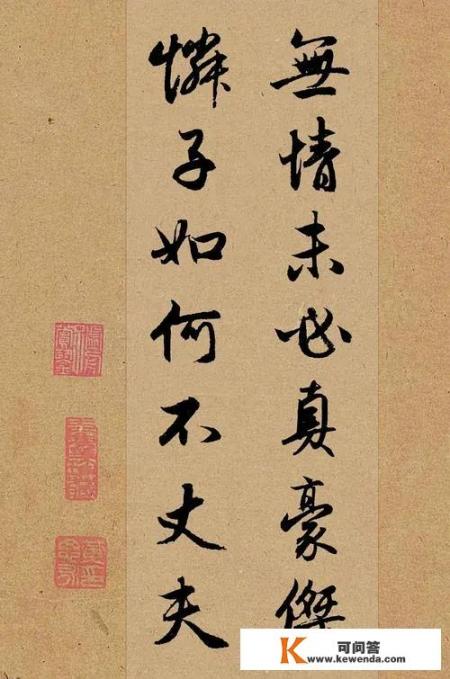 無情未必真豪傑
憐子如何不丈夫
K 可问答
www.kewenda.com